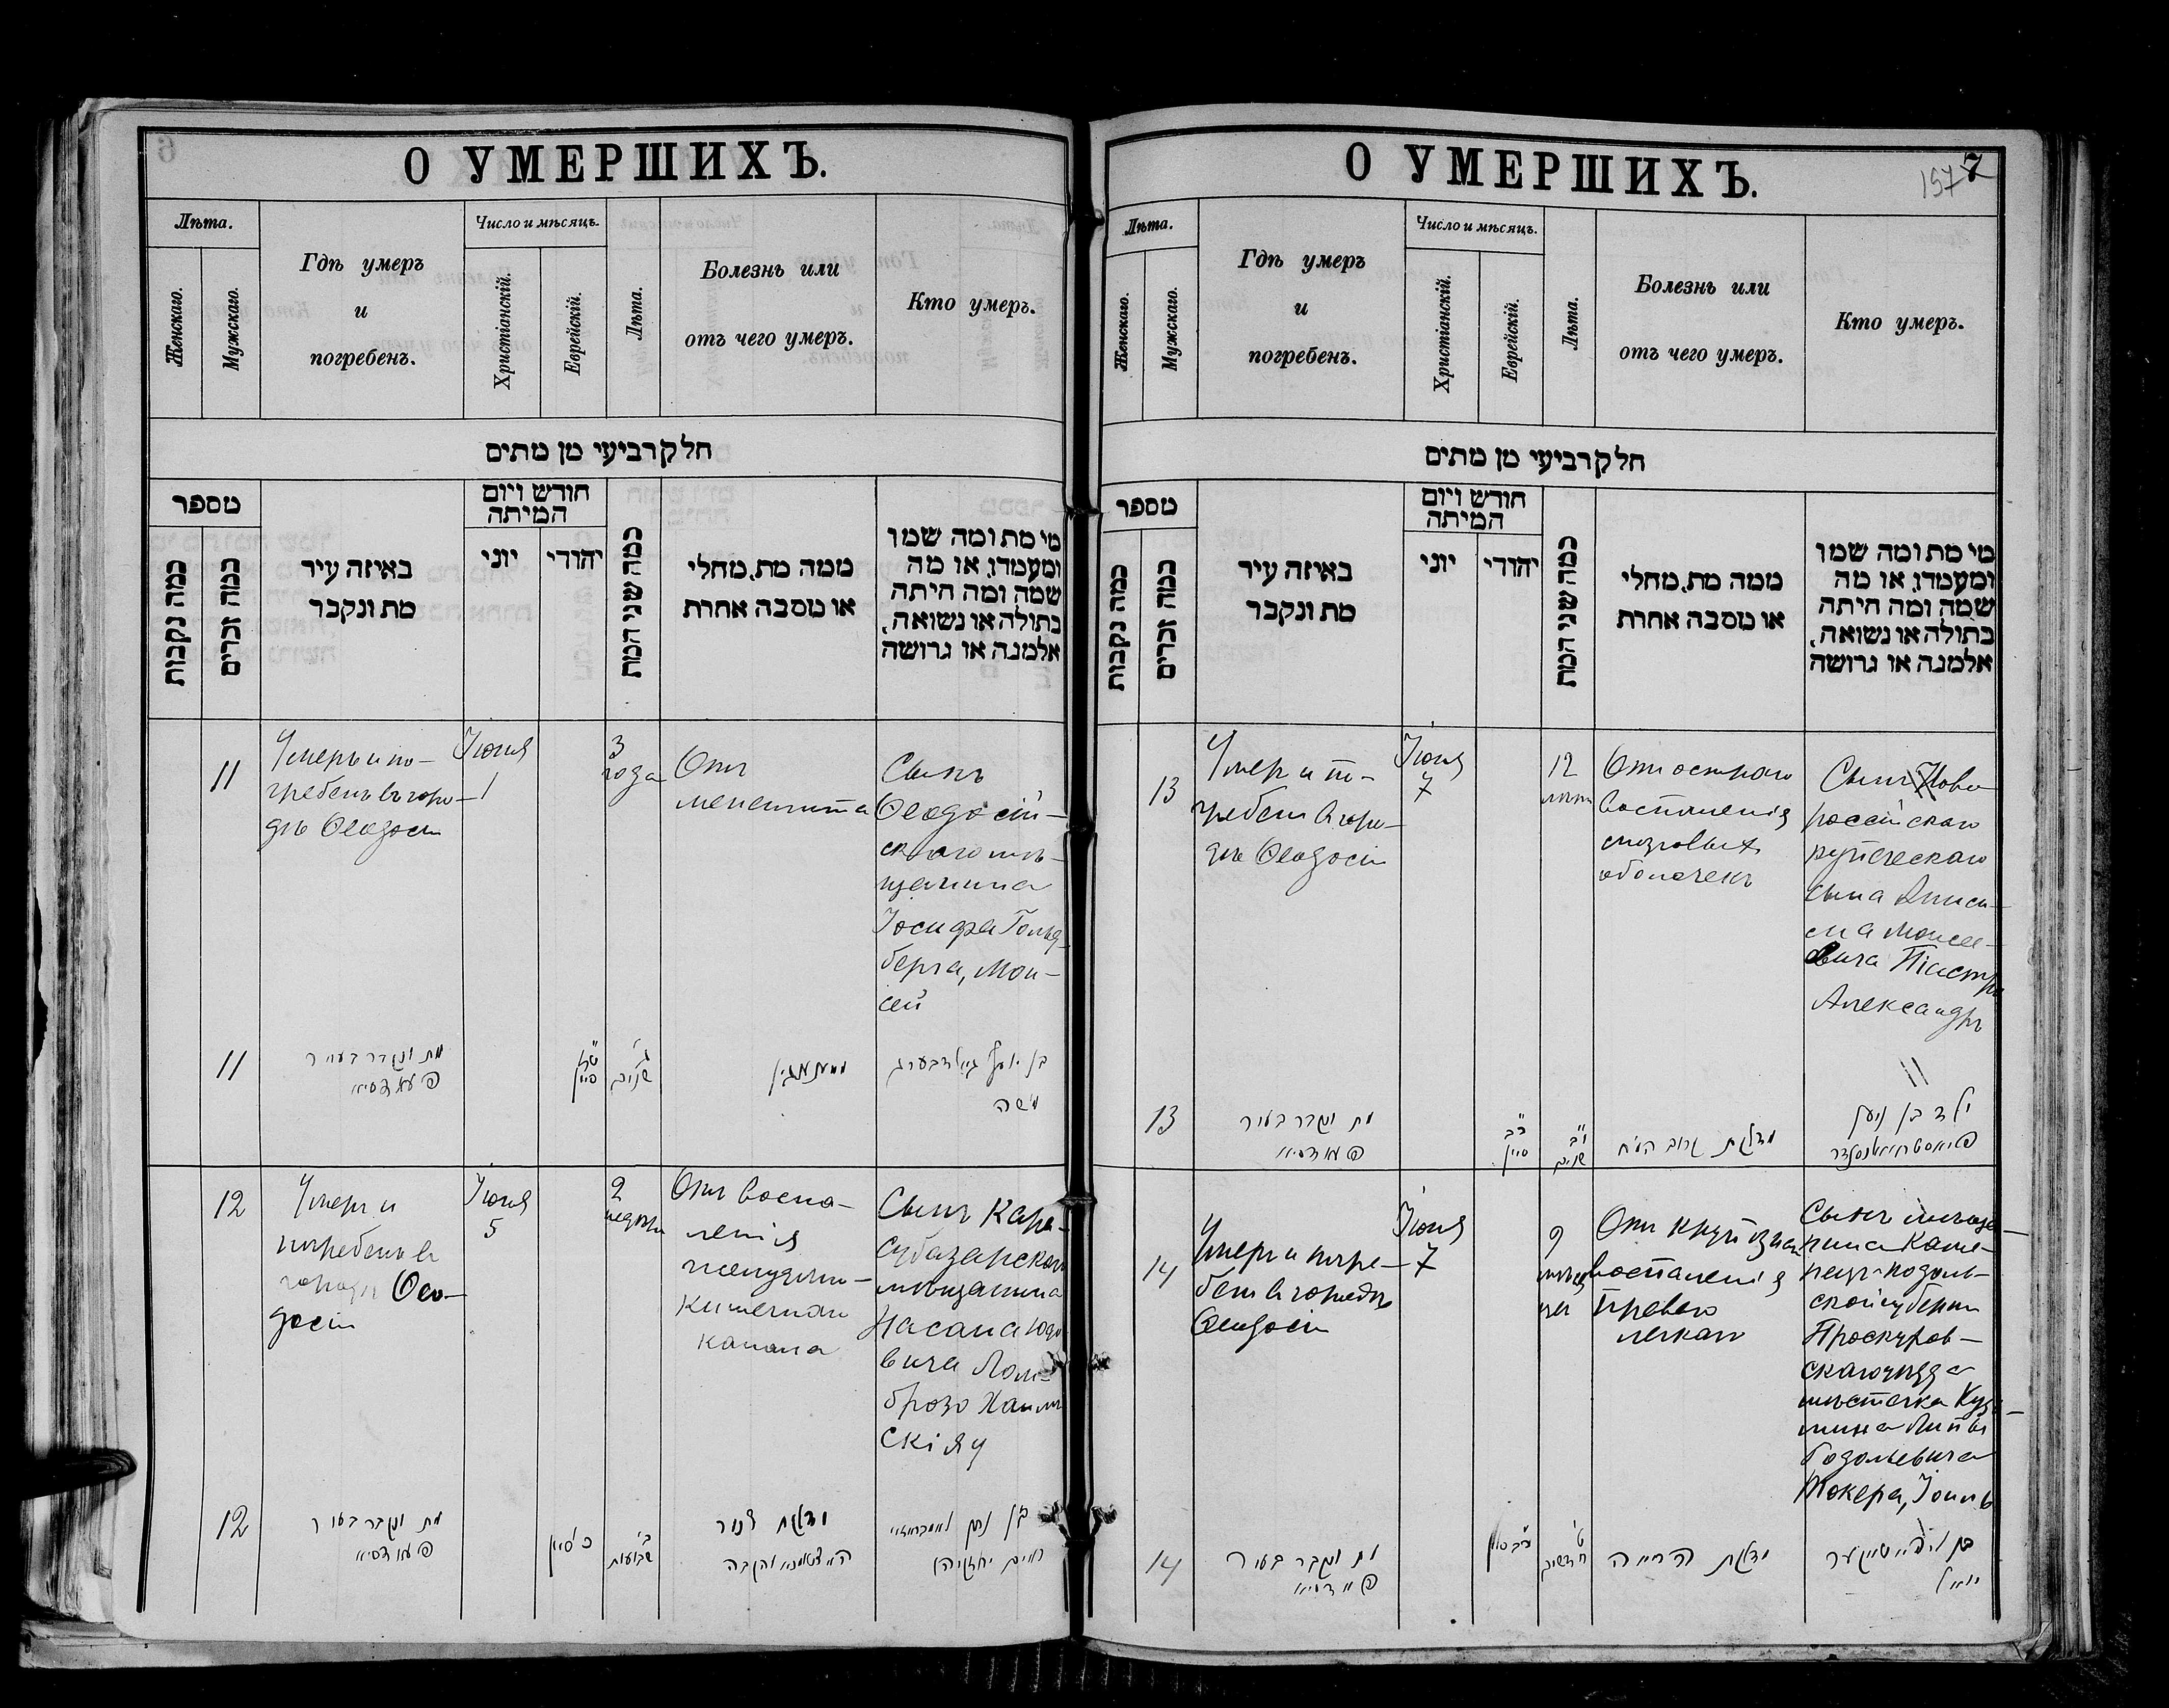 О УМЕРШИХЪ.
Лѣта.
Женскаго.
Мужскаго.
Гдѣ умеръ
и
погребенъ.
Число и мѣсяцъ.
Христіанскій.
Еврейскій.
Лѣта.
Болезнь или
отъ чего умеръ.
Кто умеръ.
חלק רביעי מן מתים
מספר
כמה נקבות
כמה זכרים
באיזה עיר
מת ונקבר
חודש ויום
המיתה
יוני
יהודי
כמה שני המת
ממה מת, מחלי
או מסבה אחרת
מי מת ומה שמו
ומעמדו, או מה
שמה ומה היתה
בתולה או נשואה,
אלמנה או גרושה
11
Умеръ и по-
гребенъ въ горо-
дѣ Ѳеодосіи
Іюня
1
3
года
Отъ
менингита
Сынъ
Ѳеодосій-
скаго мѣ-
щанина
Іосифа Гольд-
берга, Мои-
сей
11
מת ונקבר בעיר
סיון
ג'
שנים
בן יוסף גאלדבערג
משה
12
Умеръ и
погребенъ въ
городѣ Ѳео-
досіи
Іюня
5
2
недѣли
Отъ воспа-
ленія
желудочно-
кишечнаго
канала
Сынъ Кара-
субазарскаго
мѣщанина
Насана Юдо-
вича Лом-
брозо Хаимъ
12
מת ונקבר בעיר
סיון
ב'
שבועות
בן נתן
חיים
О УМЕРШИХЪ.
157 7
Лѣта.
Женскаго.
Мужскаго.
Гдѣ умеръ
и
погребенъ.
Число и мѣсяцъ.
Христіанскій.
Еврейскій.
Лѣта.
Болезнь или
отъ чего умеръ.
Кто умеръ.
חלק רביעי מן מתים
מספר
כמה נקבות
כמה זכרים
באיזה עיר
מת ונקבר
חודש ויום
המיתה
יוני
יהודי
כמה שני המת
ממה מת, מחלי
או מסבה אחרת
מי מת ומה שמו
ומעמדו, או מה
שמה ומה היתה
בתולה או נשואה,
אלמנה או גרושה
13
Умеръ и по-
гребенъ въ горо-
дѣ Ѳеодосіи
Іюня
7
12
лѣтъ
Отъ остраго
воспаленія
мозговыхъ
оболочекъ
Сынъ Ново
россійскаго
купеческаго
сына
Моисее-
вича
Александръ
13
מת ונקבר בעיר
כ"ב
סיון
י"ב
שנים
דלקת קרום המח
ילד בן
14
Умеръ и погре-
бенъ въ городѣ
Ѳеодосіи
Іюня
7
9
мѣся
цев
Отъ крупознаго
воспаленія
праваго
легкаго
Сынъ
Каме-
нецъ-подоль-
ской губерніи
Проскуров-
скаго уѣзда
мѣстечка Кузь-
мина
Токера, Іоиль
14
מת ונקבר בעיר
כ"ב סיון
ט'
חדשים
דלקת הריאה
בן
יואל